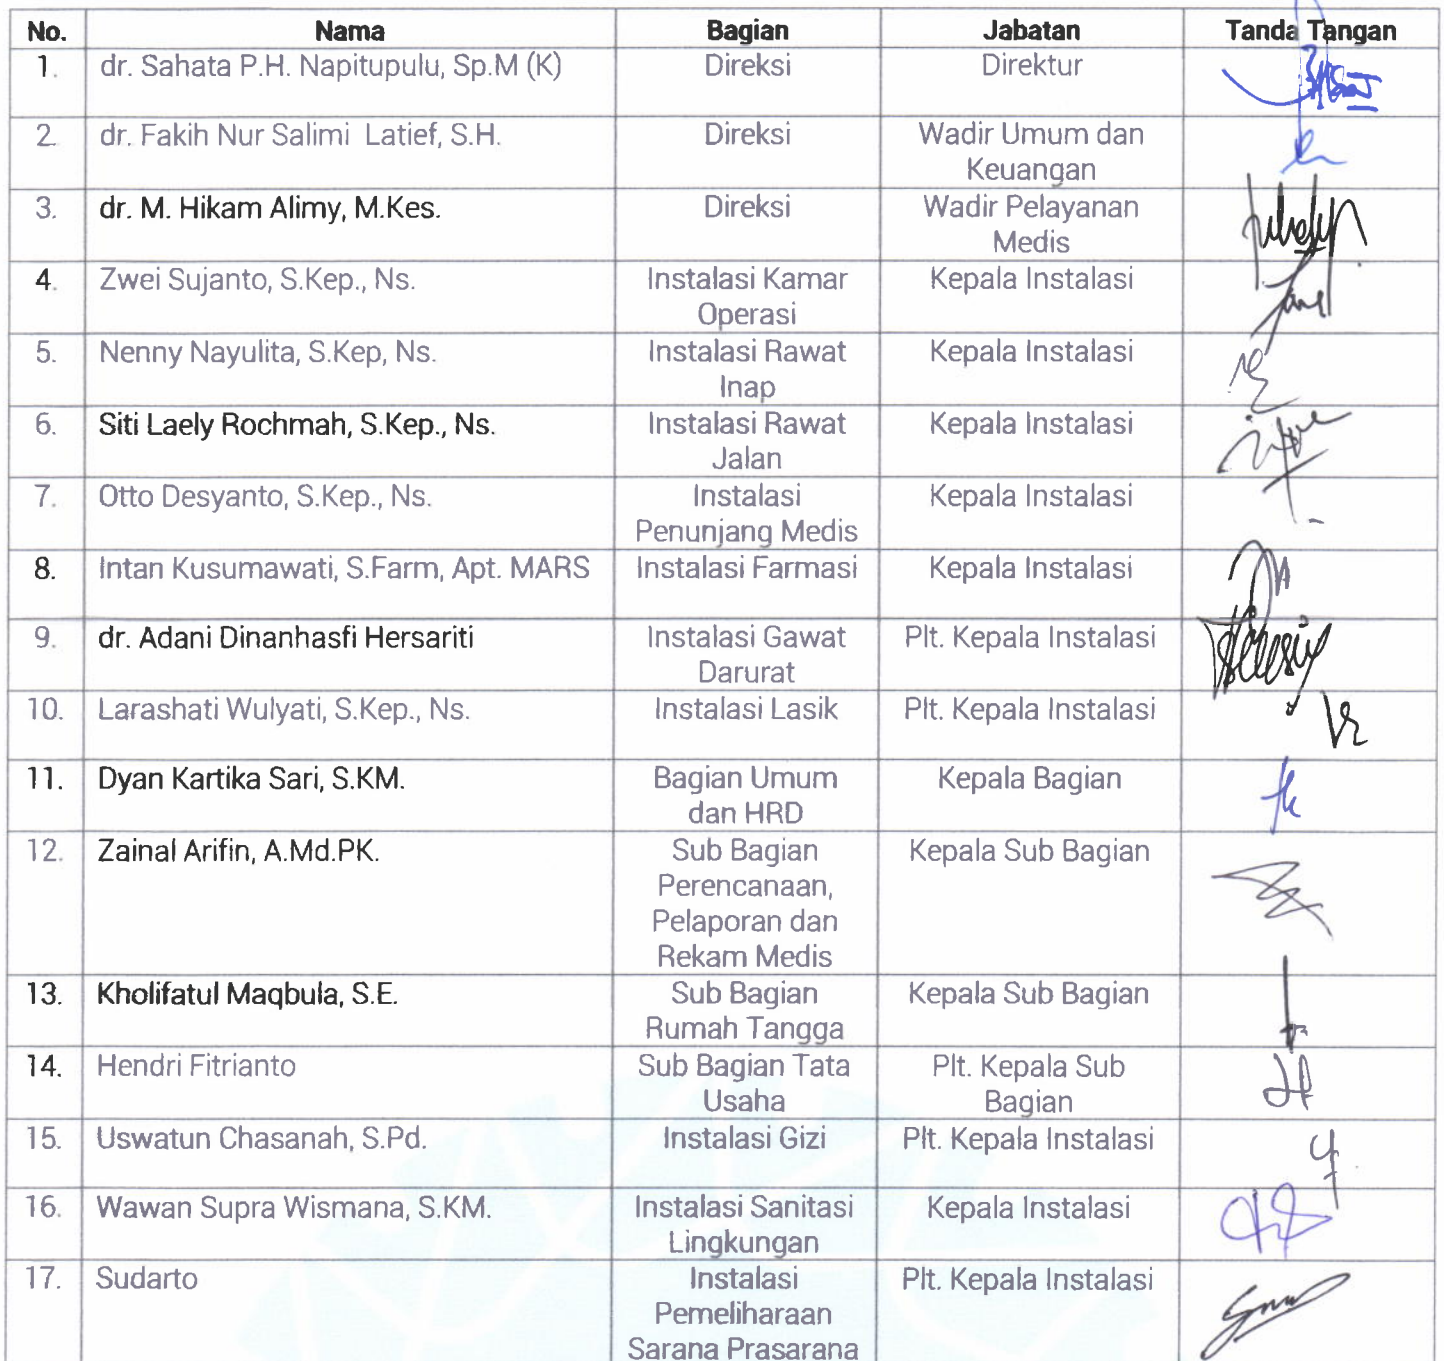 No. Nama Bagian Jabatan Tanda Tangan
1. dr. Sahata P.H. Napitupulu, Sp.M (K) Direksi Direktur
2. dr. Fakih Nur Salimi Latief, S.H. Direksi Wadir Umum dan
Keuangan
3. dr. M. Hikam Alimy, M.Kes. Direksi Wadir Pelayanan
Medis
4. Zwei Sujanto, S.Kep., Ns. Instalasi Kamar Kepala Instalasi
Operasi
5. Nenny Nayulita, S.Kep, Ns. Instalasi Rawat Kepala Instalasi
Inap
6. Siti Laely Rochmah, S.Kep., Ns. Instalasi Rawat Kepala Instalasi
Jalan
7. Otto Desyanto, S.Kep., Ns. Instalasi Kepala Instalasi
Penunjang Medis
8. Intan Kusumawati, S.Farm, Apt. MARS Instalasi Farmasi Kepala Instalasi
9. dr. Adani Dinanhasfi Hersariti Instalasi Gawat Plt. Kepala Instalasi
Darurat
10. Larashati Wulyati, S.Kep., Ns. Instalasi Lasik Plt. Kepala Instalasi
11. Dyan Kartika Sari, S.KM. Bagian Umum Kepala Bagian
dan HRD
12. Zainal Arifin, A.Md.PK. Sub Bagian Kepala Sub Bagian
Perencanaan,
Pelaporan dan
Rekam Medis
13. Kholifatul Maqbula, S.E. Sub Bagian Kepala Sub Bagian
Rumah Tangga
14. Hendri Fitrianto Sub Bagian Tata Plt. Kepala Sub
Usaha Bagian
15. Uswatun Chasanah, S.Pd. Instalasi Gizi Plt. Kepala Instalasi
16. Wawan Supra Wismana, S.KM. Instalasi Sanitasi Kepala Instalasi
Lingkungan
17. Sudarto Instalasi Plt. Kepala Instalasi
Pemeliharaan
Sarana Prasarana